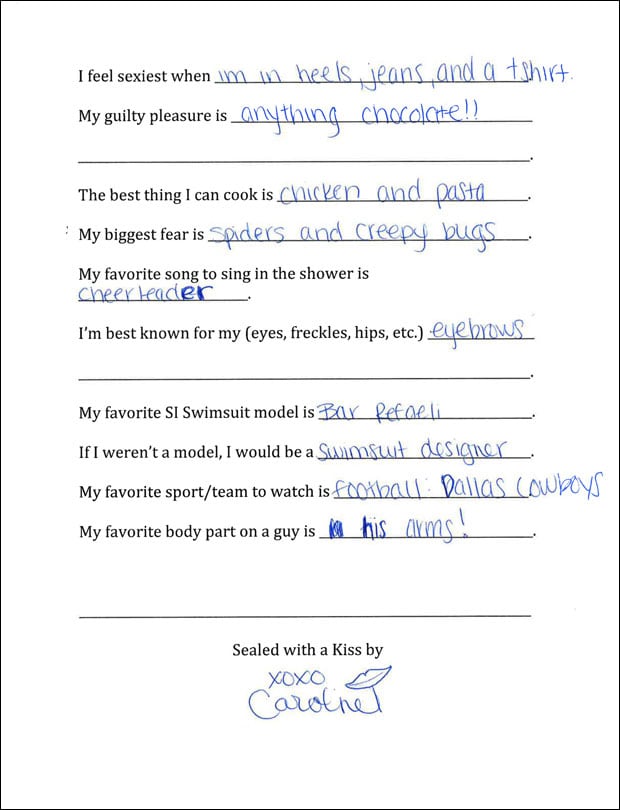 I feel sexiest when im in heels, jeans, and a tshirt.
My guilty pleasure is anything chocolate!!
.
The best thing I can cook is chicken and pasta.
My biggest fear is spiders and creepy bugs.
My favorite song to sing in the shower is
cheerleader.
I'm best known for my (eyes, freckles, hips, etc.) eyebrows
.
My favorite SI Swimsuit model is Bar Refaeli.
If I weren't a model, I would be a swimsuit designer.
My favorite sport/team to watch is football: Dallas Cowboys
My favorite body part on a guy is his arms!.
Sealed with a Kiss by
xoxo
Caroline